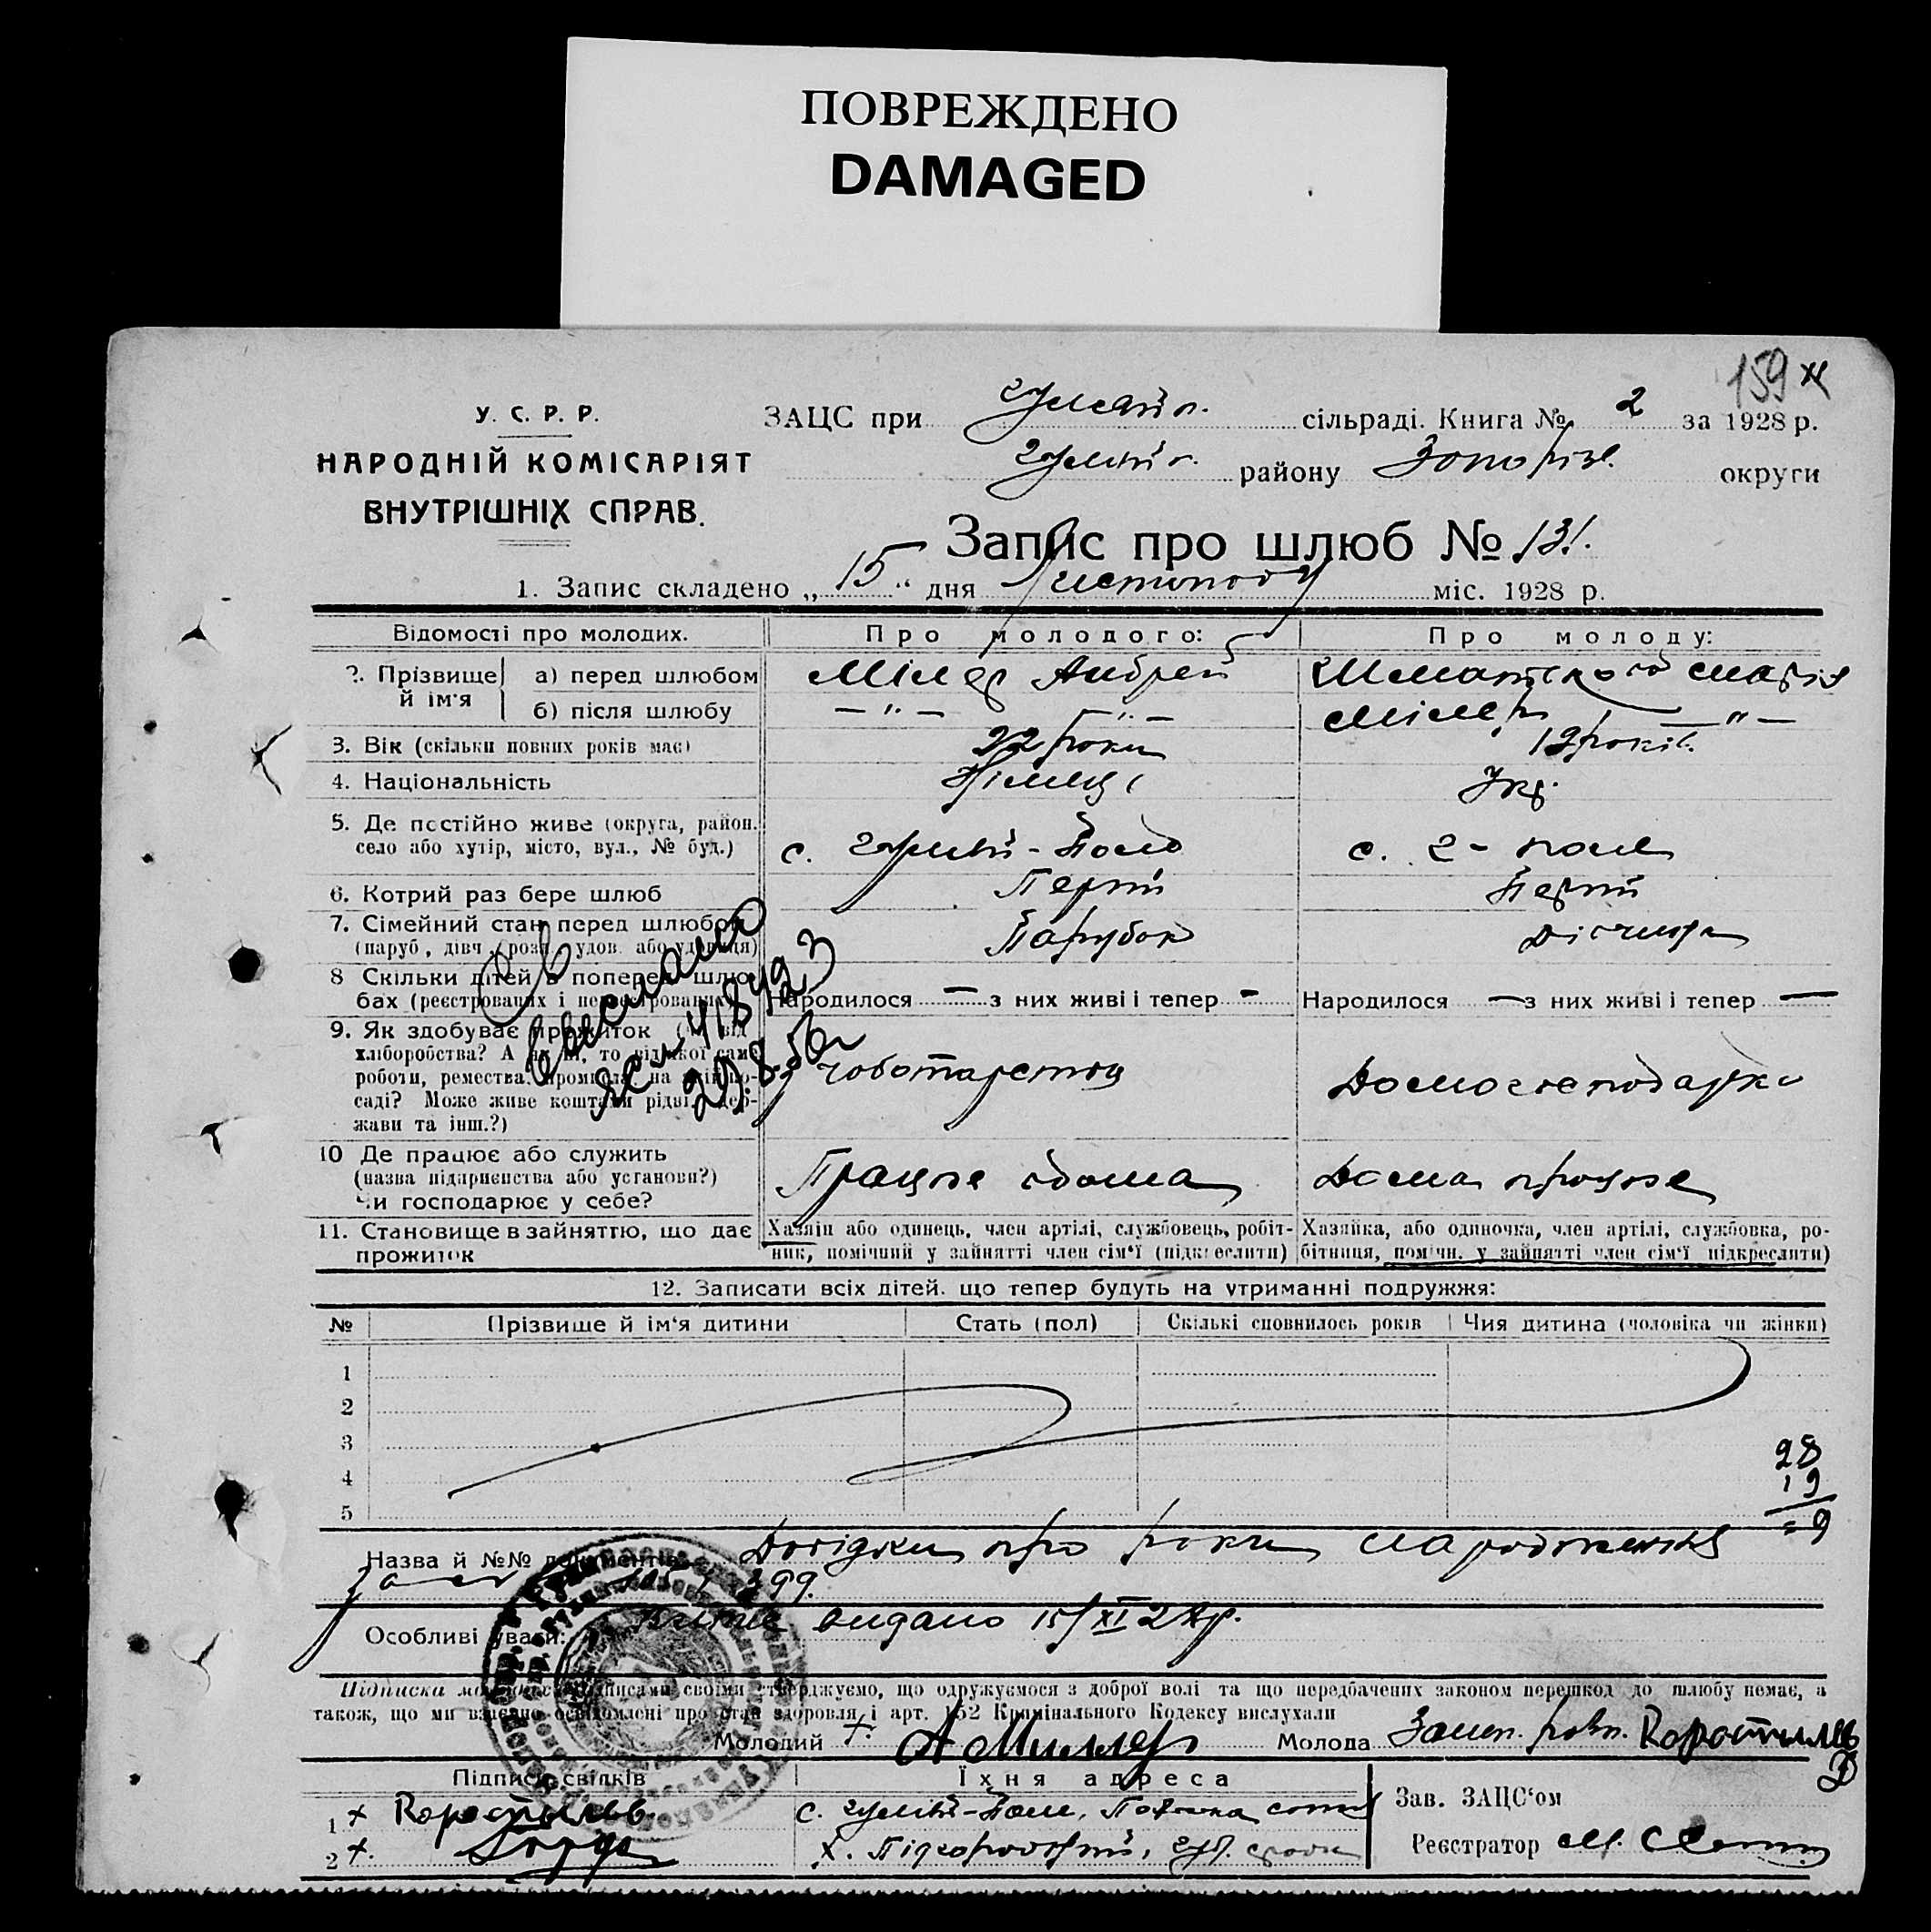 ПОВРЕЖДЕНО
DAMAGED
159
У. С. Р. Р.
НАРОДНІЙ КОМІСАРІЯТ
ВНУТРІШНІХ СПРАВ.
ЗАЦС при сільраді. Книга № 2 за 1928 р.
району Запоріз. округи
Запис про шлюб № 131.
1. Запис складено „15“ дня Листопаду міс. 1928 р.
Відомості про молодих. Про молодого: Про молоду:
2. Прізвище й ім'я а) перед шлюбом Мілер Андрей Марія
б) після шлюбу — „ — — „ — Мілер — „ —
3. Вік (скільки повних років має) 22 роки 19 років.
4. Національність Німець Укр.
5. Де постійно живе (округа, район. село або хутір, місто, вул., № буд.) с. Гуляй-Поле с. Г-поле
6. Котрий раз бере шлюб Перший Перший
7. Сімейний стан перед шлюбом
(паруб, дівч, розв, удов. або удовиця) Парубок Дівчина
8 Скільки дітей в поперед. шлюбах (реєстрованих і нереєстрованих) Народилося — з них живі і тепер - Народилося — з них живі і тепер —
9. Як здобуває прожиток
хліборобства? А як ні, то від якої саме
роботи, ремества, промисла, на якій посаді? Може живе коштами рідні, держави та інш.?)
Домогосподарка
29.8.56
10 Де працює або служить
(назва підприєнства або установи?)
Чи господарює у себе? Працює дома Дома працює
11. Становище в зайняттю, що дає прожиток
Хазяїн або одинець, член артілі, службовець, робітник, помічний у зайнятті член сім'ї (підкреслити)
Хазяйка, або одиночка, член артілі, службовка, робітниця, помічн. у зайнятті член сім'ї підкреслити)
12. Записати всіх дітей. що тепер будуть на утриманні подружжя:
№ Прізвище й ім'я дитини Стать (пол) Скількі сповнилось років Чия дитина (чоловіка чи жінки)
1
2
3
4
5
28
19
= 9
Назва й №№ документів Довідки про роки народження
399.
Особливі уваги: видано 15/XI 28р.
Підписка молодих: підписами своїми стверджуємо, що одружуємося з доброї волі та що передбачених законом перешкод до шлюбу немає, а
також, що ми взаємно освідомлені про стан здоровля і арт. 152 Крімінального Кодексу вислухали
Молодий +. А Миллер Молода
Підписи свідків Їхня адреса
1 + с. Гуляй-Поле,
2 +.
Зав. ЗАЦС'ом
Реєстратор